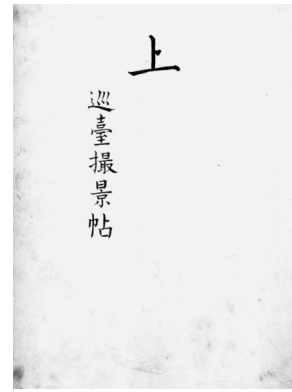 上
巡臺撮景帖